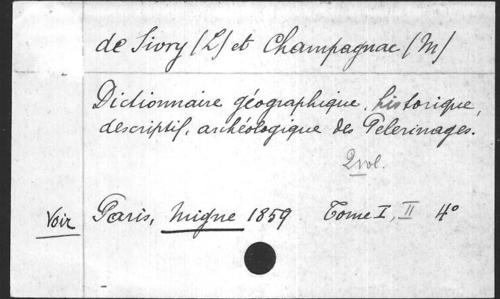 de Sivry (L) et Champagnac (M)
Dictionnaire géographique, historique,
descriptif, archéologique des Pelerinages.
2 vol.
Voir Paris, Migne 1859 Tome I, II 4°